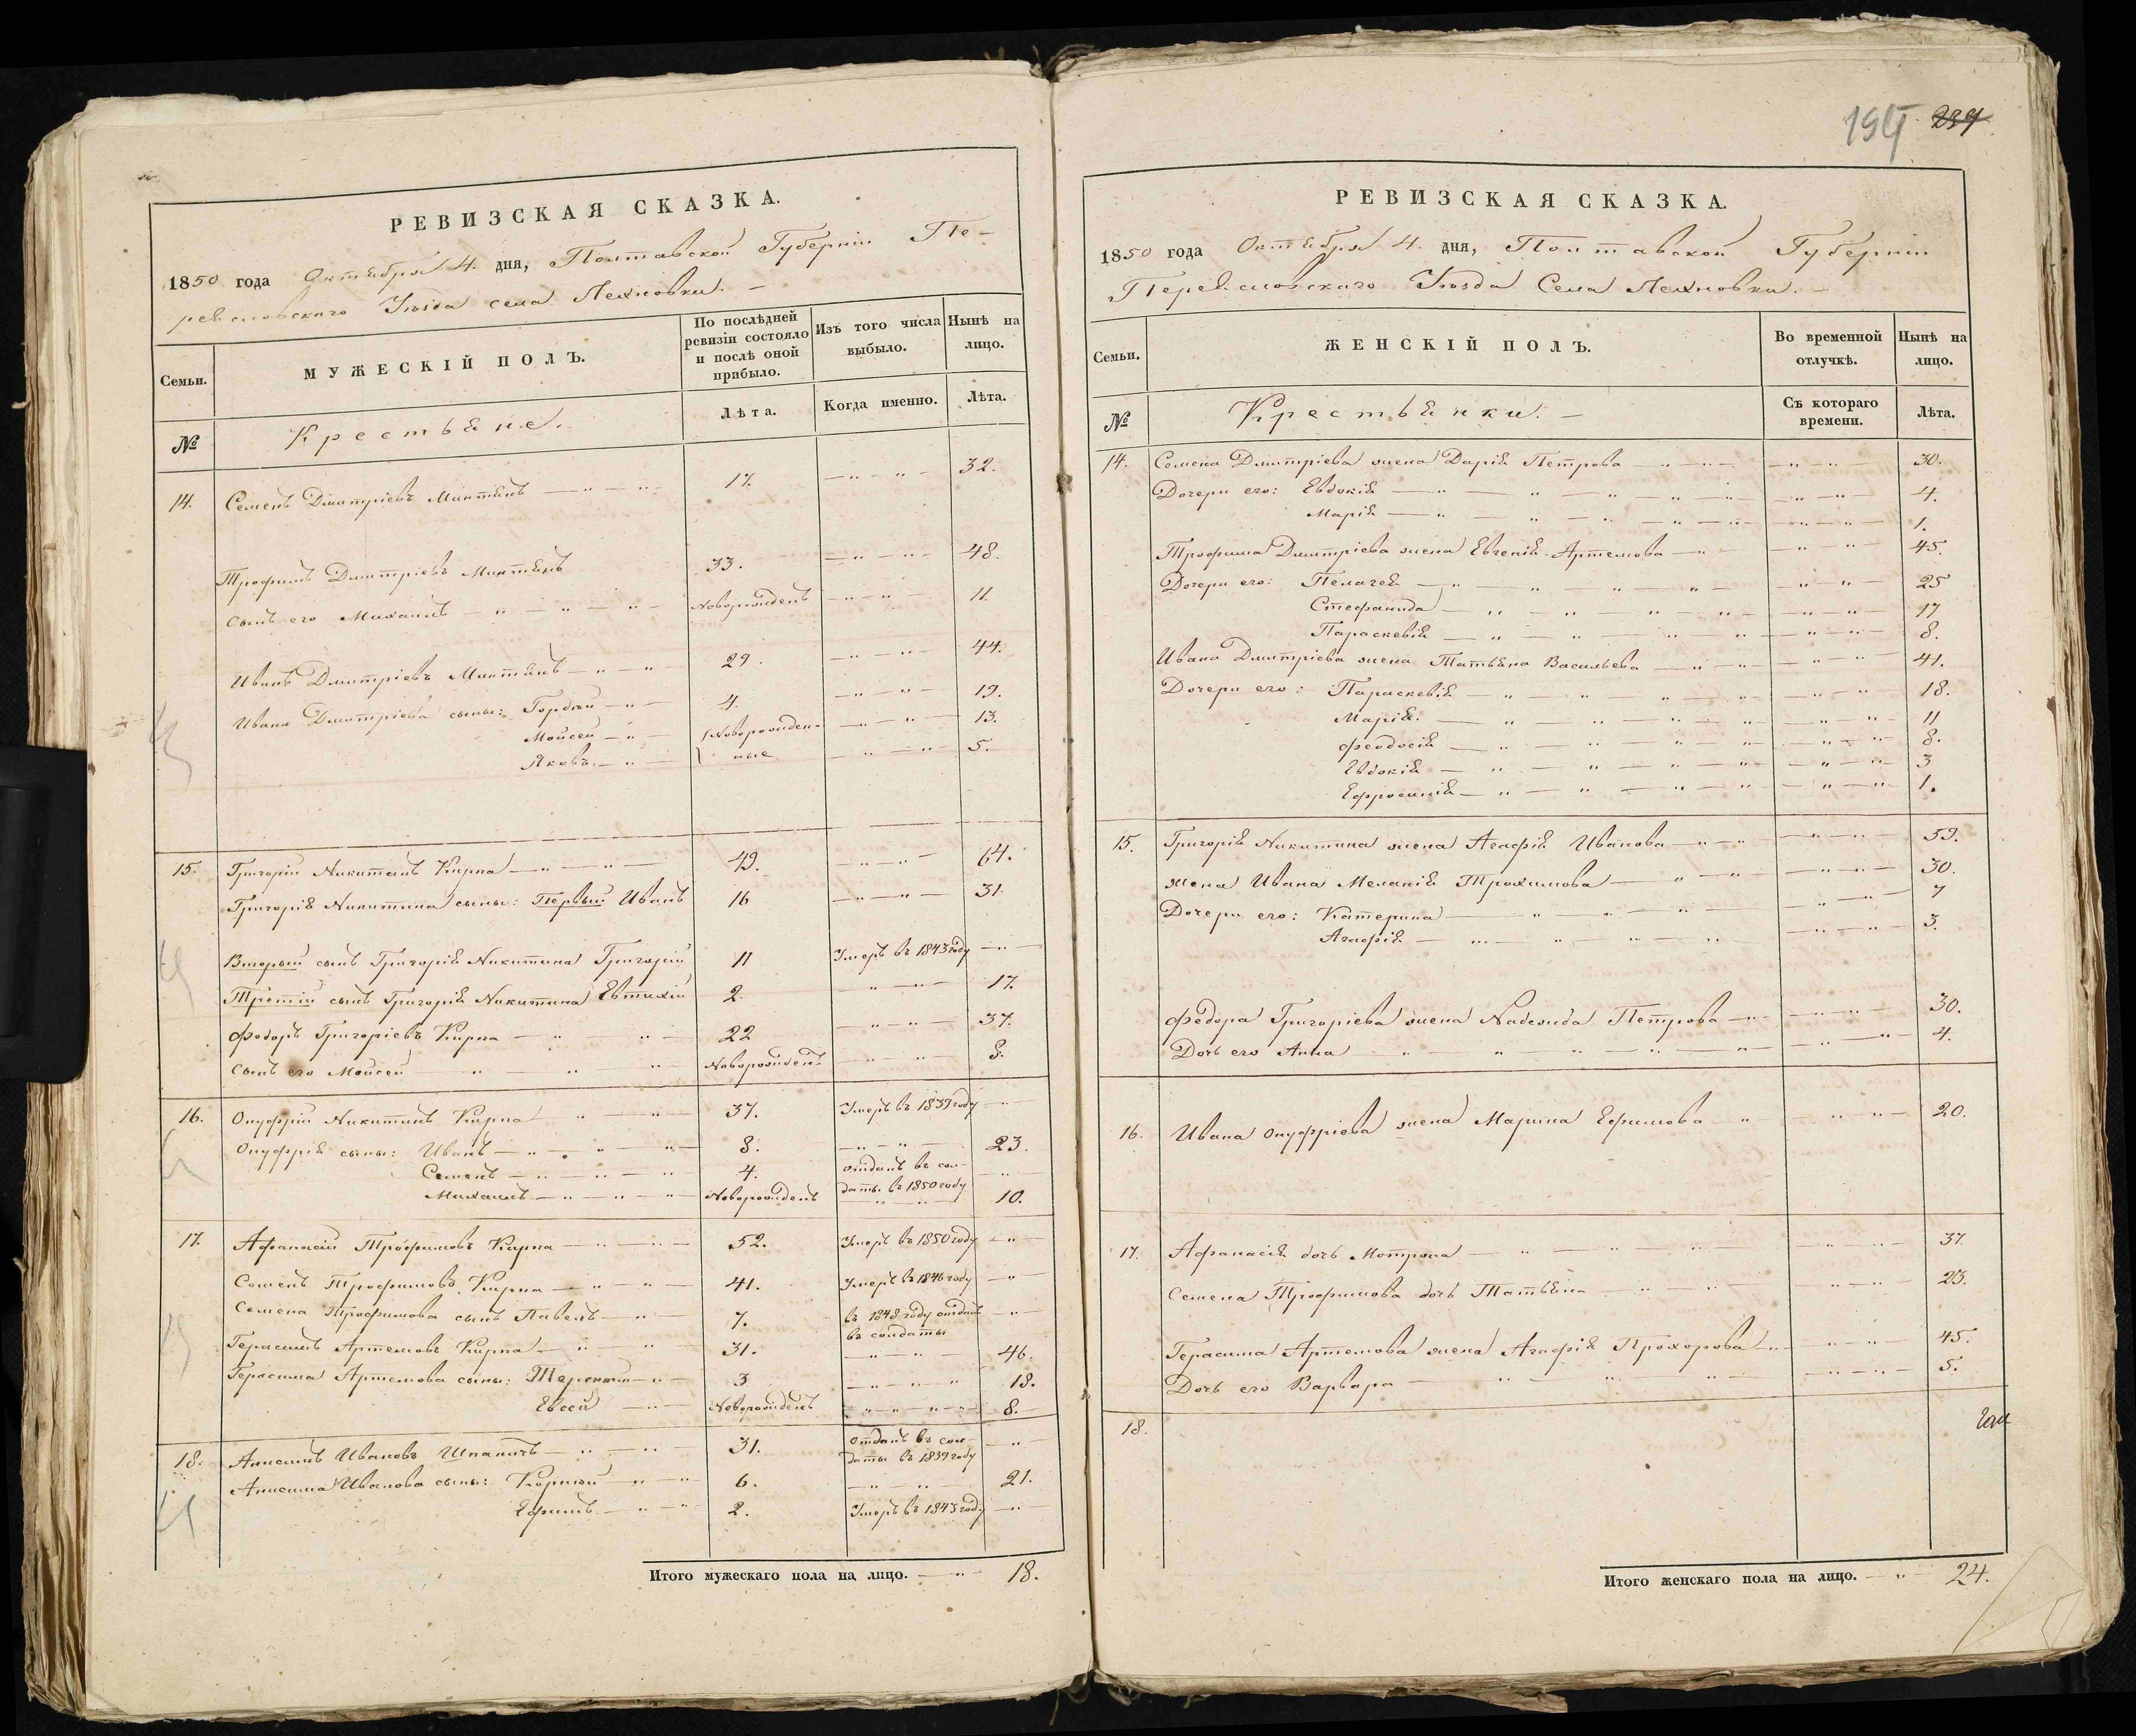 РЕВИЗСКАЯ СКАЗКА.
1850 года Октября 4. дня, Полтавской Губерніи Пе-
реяславскаго Уѣзда села Лехновки. —
Семьи.
МУЖЕСКІЙ ПОЛЪ.
По послѣдней ревизіи состояло и послѣ оной прибыло.
Изъ того числа выбыло.
Нынѣ на лицо.
№
Крестьяне.
Лѣта.
Когда именно.
Лѣта.
14. Семенъ Дмитріевъ Миктянъ — " — " 17. — " — " — 32.
Трофимъ Дмитріевъ Миктянъ 33. — " — " — 48.
Сынъ его Михаилъ — " — " — " — Новорожденъ — " — " — 11.
Иванъ Дмитріевъ Миктянъ — " — " 29. — " — " — 44.
Ивана Дмитріева сыны: Гордѣй — " — 4. — " — " — 19.
Мойсей — " — Новорожден- — " — " — 13.
Яковъ. — " — ные — " — " — 5.
15. Григорій Никитинъ Кирпа — " — " — 49. — " — " — 64.
Григорія Никитина сыны: Первый Иванъ 16 — " — " — 31.
Вторый сынъ Григорія Никитина Григорій 11 Умеръ въ 1843 году — " —
Третій сынъ Григорія Никитина Евтихій 2. — " — " — 17.
Федоръ Григоріевъ Кирпа — " — " — 22 — " — " — 37.
Сынъ его Мойсей " — " — " Новорожденъ — " — " — 8.
16. Онуфрій Никитинъ Кирпа — " — " — 37. Умеръ въ 1839 году — " —
Онуфрія сыны: Иванъ — " — " — " 8. — " — " — 23.
Семенъ — " — " — " 4. отданъ въ сол- — " —
Михаилъ — " — " — " Новорожденъ даты въ 1850 году 10.
17. Афанасій Трофимовъ Кирпа — " — " — 52. Умеръ въ 1850 году — " —
Семенъ Трофимовъ Кирпа — " — " — 41. Умеръ въ 1846 году — " —
Семена Трофимова сынъ Павелъ — " — 7. въ 1848 году отданъ — " —
въ солдаты
Герасимъ Артемовъ Кирпа — " — " — 31. — " — " — 46.
Герасима Артемова сыны: Терентій — " — 3 — " — " — " 18.
Евсей — " — Новорожденъ — " — " — " — 8.
18. Анисимъ Ивановъ Шпаничъ — " — " — 31. отданъ въ сол- — " —
даты въ 1839 году
Анисима Иванова сыны: Корнѣй — " — " 6. — " — " — 21.
Ефимъ. — " — " 2. Умеръ въ 1843 году — " —
Итого мужескаго пола на лицо. — " — 18.
239
РЕВИЗСКАЯ СКАЗКА.
1850 года Октября 4. дня, Полтавской Губерніи
Переяславскаго Уѣзда Села Лехновки. —
Семьи.
ЖЕНСКІЙ ПОЛЪ.
Во временной отлучкѣ.
Нынѣ на лицо.
№
Крестьянки. —
Съ котораго времени.
Лѣта.
14. Семена Дмитріева жена Дарія Петрова — " — " — " — " — 30.
Дочери его: Евдокія — " — " — " — " — " — 4.
Марія — " — " — " — " — " — 1.
Трофима Дмитріева жена Евгенія Артемова — " — " — " — 45.
Дочери его: Пелагея — " — " — " — " — " — 25
Стефанида — " — " — " — " — " — 17
Параскевія — " — " — " — " — " — 8.
Ивана Дмитріева жена Татьяна Васильева — " — " — " — 41.
Дочери его: Параскевія — " — " — " — " — 18.
Марія. — " — " — " — " — 11
Феодосія — " — " — " — " — 8.
Евдокія — " — " — " — " — 3
Ефросинія — " — " — " — " — 1.
15. Григорія Никитина жена Агафія Иванова — " — " — " — 59.
жена Ивана Меланія Трохимова — " — " — " — " — 30.
Дочери его: Катерина — " — " — " — " — 7
Агафія — " — " — " — " — 3.
Федора Григоріева жена Надежда Петрова — " — " — " — 30.
Дочь его Анна " — " — " — " — " — 4.
16. Ивана Онуфріева жена Марина Ефимова — " — " — " — 20.
17. Афанасія дочь Мотрона — " — " — " — " — 37.
Семена Трофимова дочь Татьяна — " — " — " — " — 23.
Герасима Артемова жена Агафія Прохорова — " — " — " — 45.
Дочь его Варвара — " — " — " — " — 5.
18.
Итого женскаго пола на лицо. — " — 24.